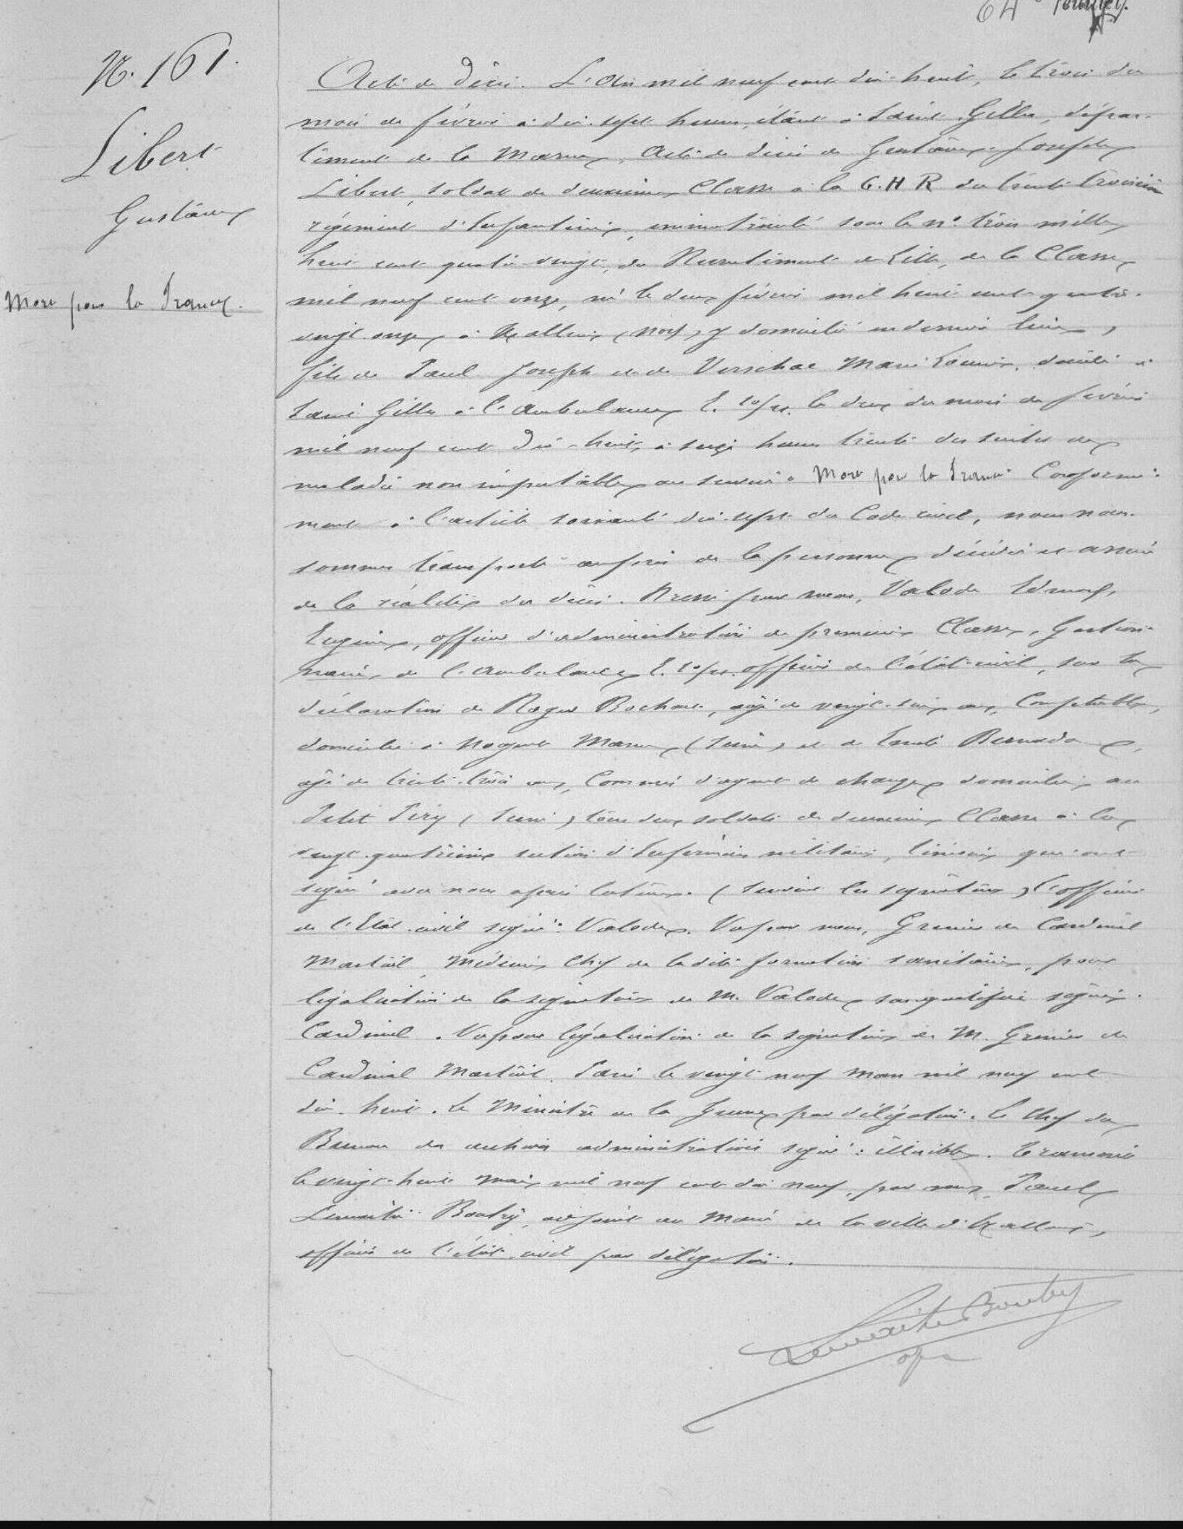 64e
N. 161.
Libert
Gustave
Mort pour la France.
Acte de décès. L'An mil neuf cent dix-huit, le trois du
mois de février à dix-sept heures, étant à Saint Gilles, dépar-
tement de la Marne, Acte de décès de Gustave Joseph
Libert, soldat de deuxième Classe à la C.H.R du trente troisième
régiment d'Infanterie, immatriculé sous le n° trois mille
huit cent quatre-vingt, du Recrutement de Lille, de la Classe
mil neuf cent onze, né le deux février mil huit cent quatre-
vingt-onze à Halluin (Nord) y domicilié en dernier lieu,
fils de Paul Joseph et de Verschae Marie Louise, décédé à
Saint Gilles à l'Ambulance E. 10/11. le deux du mois de février
mil neuf cent dix-huit, à seize heures trente des suites de
maladie non imputable au service. Mort pour la France. Conformé-
ment à l'article soixante dix-sept du Code civil, nous nous
sommes transporté auprès de la personne décédée et assuré
de la réalité du décès. Dressé par nous, Valode Edmond,
Eugène, officier d'administration de première Classe, Gestion-
naire de l'Ambulance E. officier de l'état-civil, sur la
déclaration de Roger Bochard, âgé de vingt-six ans, Comptable,
domicilié à Nogent Marne (Seine) et de
âgé de trente-trois ans, Commis d'agent de change domicilié au
Petit (Seine) tous deux soldats de deuxième Classe à la
vingt-quatrième section d'Infirmiers militaires, témoins qui ont
signé avec nous après lecture. (Suivent les signatures) l'officier
de l'Etat-civil signé: Valode. Vu par nous, Grenier de Cardenal
Martial, Médecin Chef de ladite formation sanitaire, pour
légalisation de la signature de M. Valode, sus-qualifié signé:
Cardenal. Vu pour légalisation de la signature de M. Grenier de
Cardenal Martial. Paris le vingt neuf mars mil neuf cent
dix-huit. Le Ministre de la Guerre par délégation. Le Chef du
Bureau des archives administratives signé: illisible. Transcrit
le vingt-huit mai mil neuf cent dix neuf, par nous, Paul
Lemaitre Boutry, adjoint au Maire de la ville d'Halluin,
officier de l'état-civil par délégation.
Lemaitre Boutry